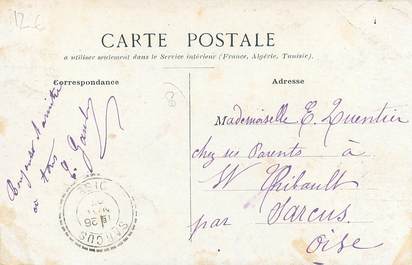 12 €
CARTE POSTALE
a utiliser seulement dans le Service intérieur (France, Algérie, Tunisie).
Correspondance
Adresse
Bonjour
à tous
E.
Mademoiselle E. Quentier
chez ses Parents à
St Thibault
par Sarcus.
Oise
SARCUS
OISE